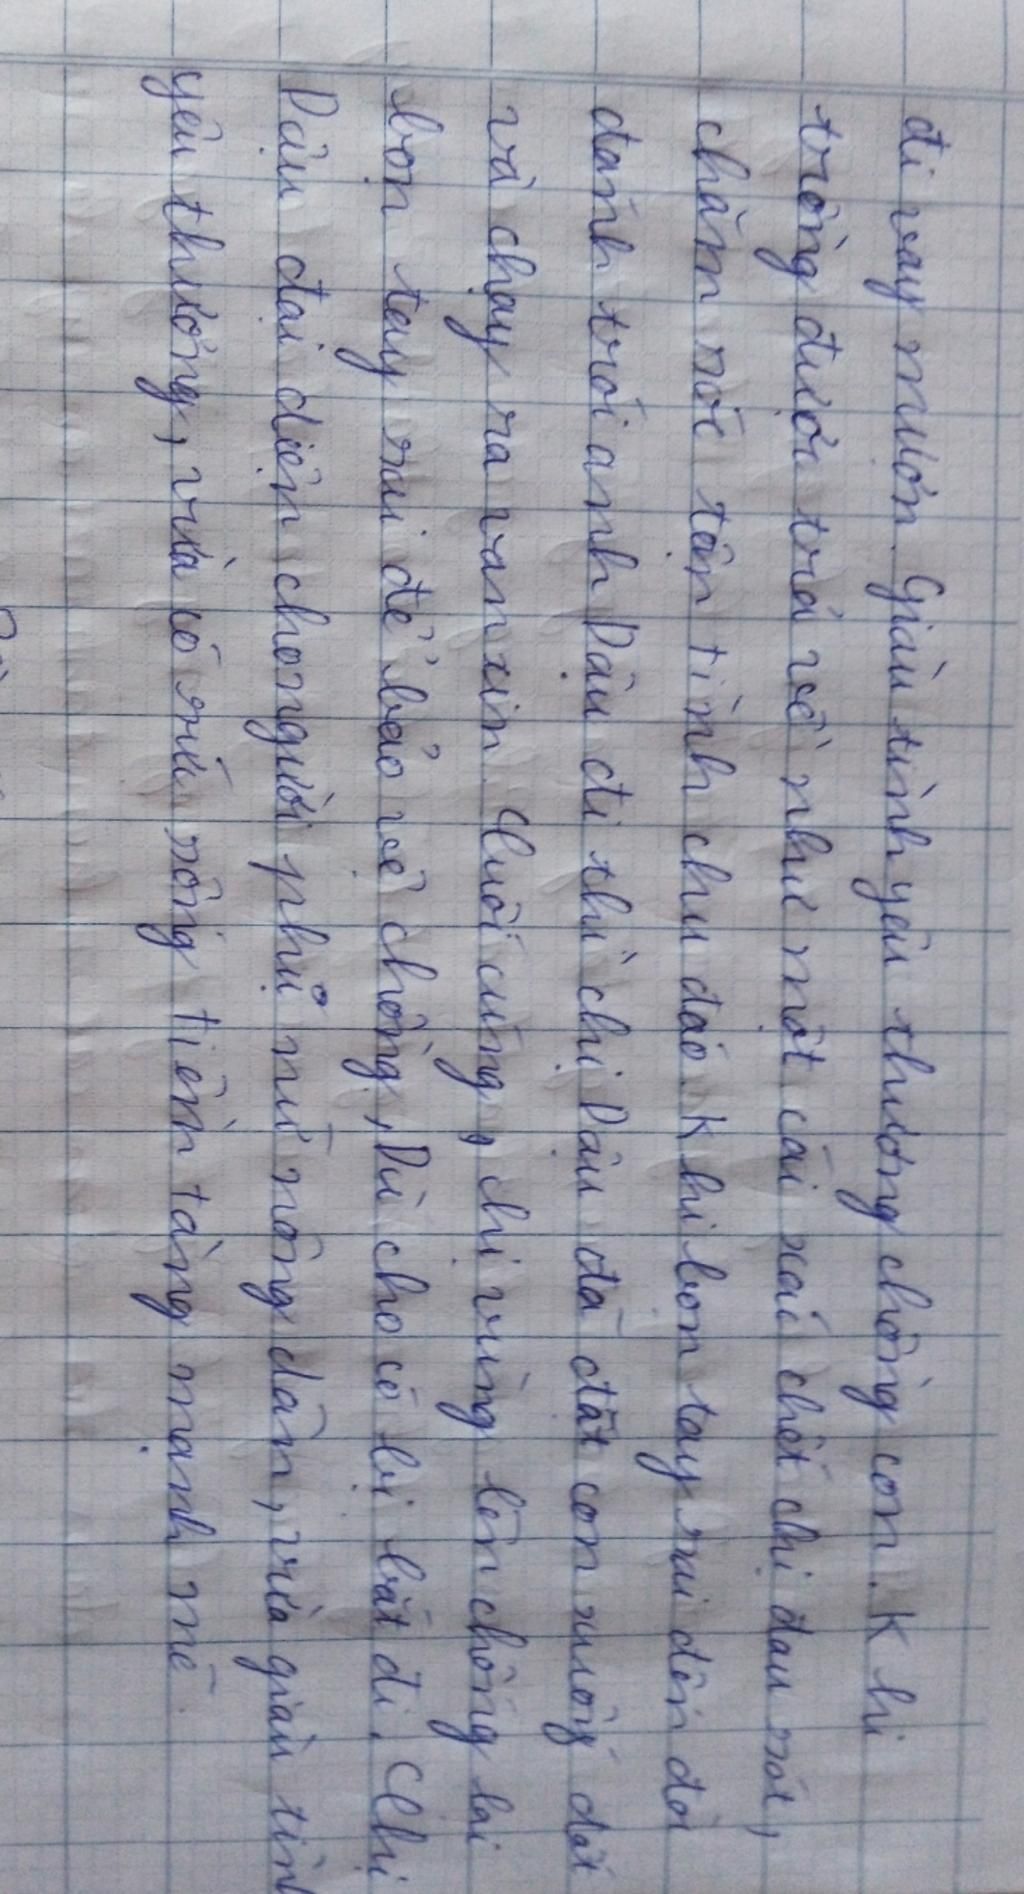 đi vay mượn. Giàu tình yêu thương chồng con. Khi
trồng được trả về như một cái xác chết chị đau xót,
chăm sóc tận tình chu đáo. Khi bọn tay sai đến đòi
đánh trói anh Dậu đi thì chị Dậu đã đặt con xuống đất
và chạy ra van xin. Cuối cùng, chị vùng lên chống lại
bọn tay sai để bảo vệ chồng, Dù cho có bị bắt đi. Chị
Dậu đại diện cho người phụ nữ nông dân, vừa giàu tình
yêu thương, vừa có sức sống tiềm tàng mạnh mẽ.